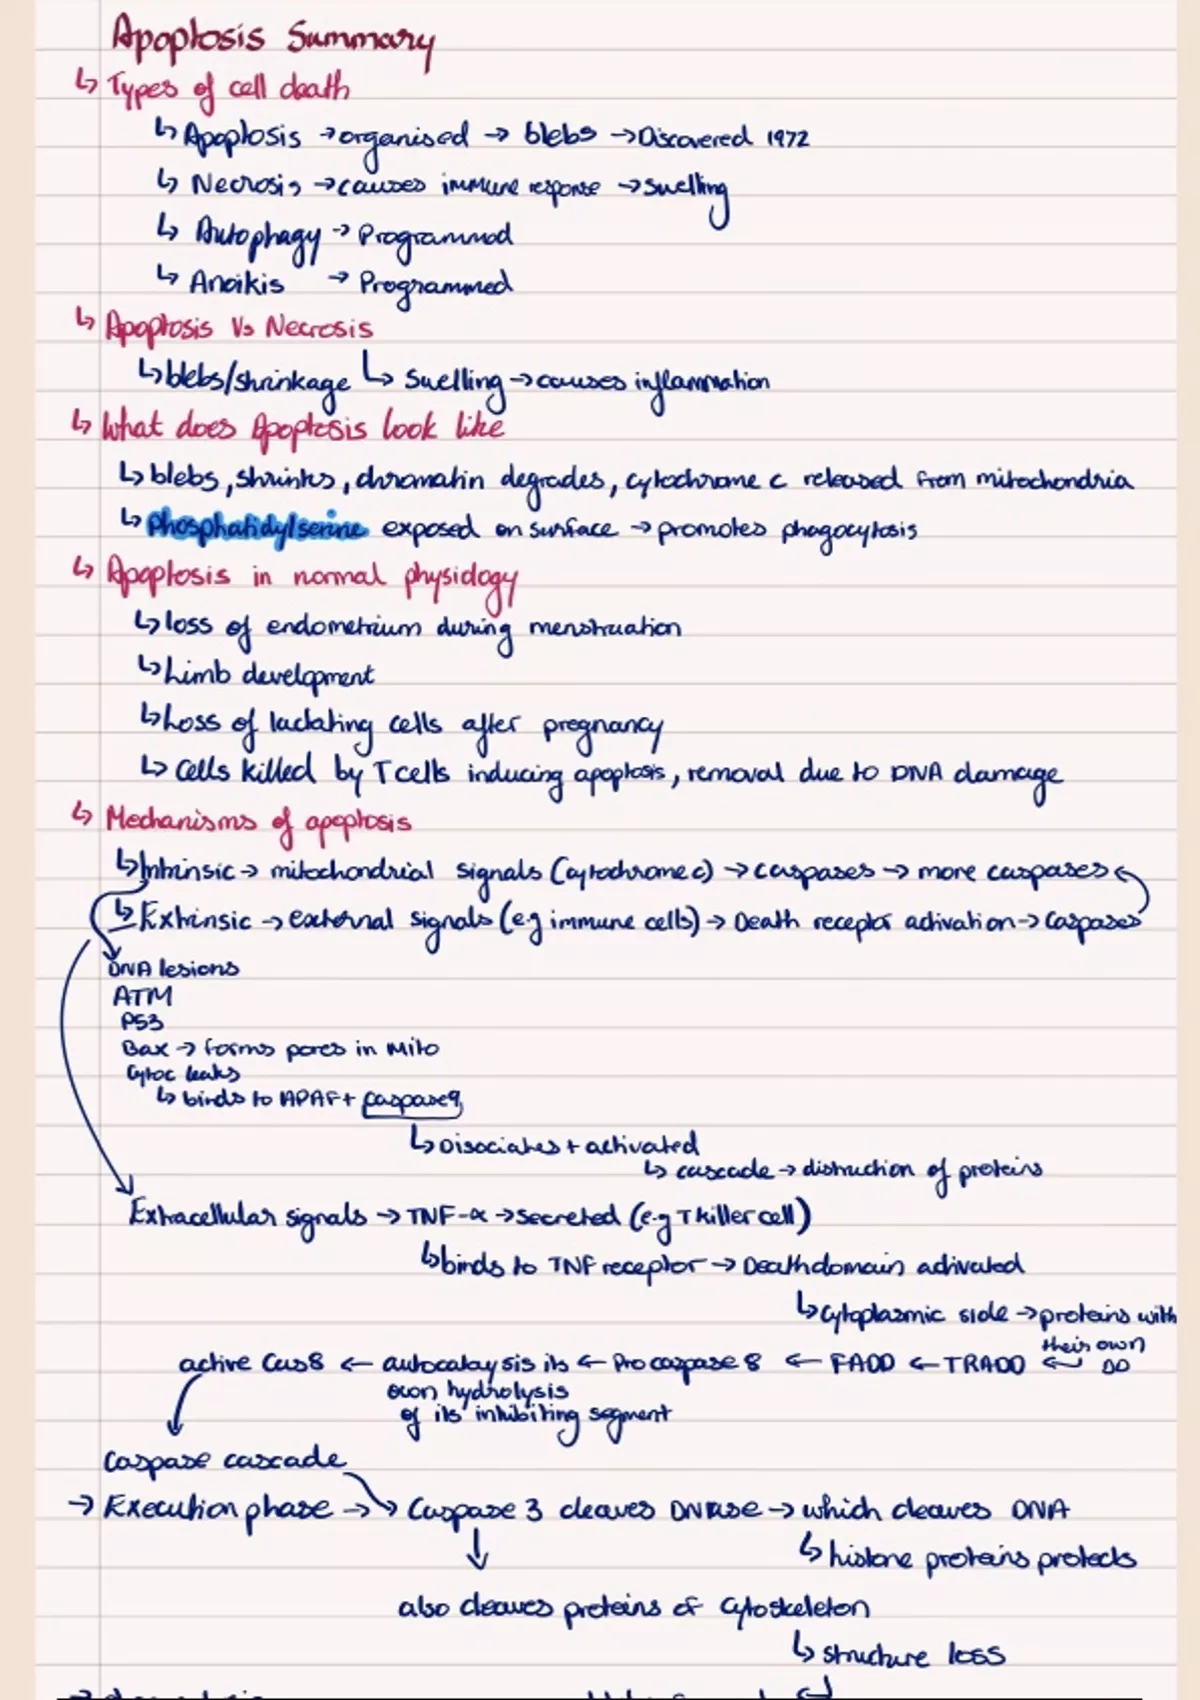 Apoptosis Summary
↳ Types of cell death
↳ Apoptosis → organised → blebs → Discovered 1972
↳ Necrosis → causes immune response → swelling
↳ Autophagy → Programmed
↳ Anoikis → Programmed
↳ Apoptosis Vs Necrosis
↳ blebs/shrinkage ↳ Swelling → causes inflammation
↳ What does Apoptosis look like
↳ blebs, shrinks, chromatin degrades, cytochrome c released from mitochondria
↳ Phosphatidylserine exposed on surface → promotes phagocytosis
↳ Apoptosis in normal physiology
↳ loss of endometrium during menstruation
↳ Limb development
↳ Loss of lactating cells after pregnancy
↳ Cells killed by T cells inducing apoptosis, removal due to DNA damage
↳ Mechanisms of apoptosis
↳ Intrinsic → mitochondrial signals (cytochrome c) → caspases → more caspases
↳ Extrinsic → external signals (e.g immune cells) → Death receptor activation → Caspases
DNA lesions
ATM
P53
Bax → forms pores in Mito
Cytoc leaks
↳ binds to APAF + caspase9
↳ Disociates + activated
↳ cascade → distruction of proteins
Extracellular signals → TNF-α → secreted (e.g T killer cell)
↳ binds to TNF receptor → Death domain activated
↳ Cytoplasmic side → proteins with
their own
active Cas8 ← autocataysis its ← Procaspase 8 ← FADD ← TRADD ← DD
own hydrolysis
of its inhibiting segment
Caspase cascade
→ Execution phase → Caspase 3 cleaves DNase → which cleaves DNA
↳ histone proteins protects
↓
also cleaves proteins of cytoskeleton
↳ structure loss